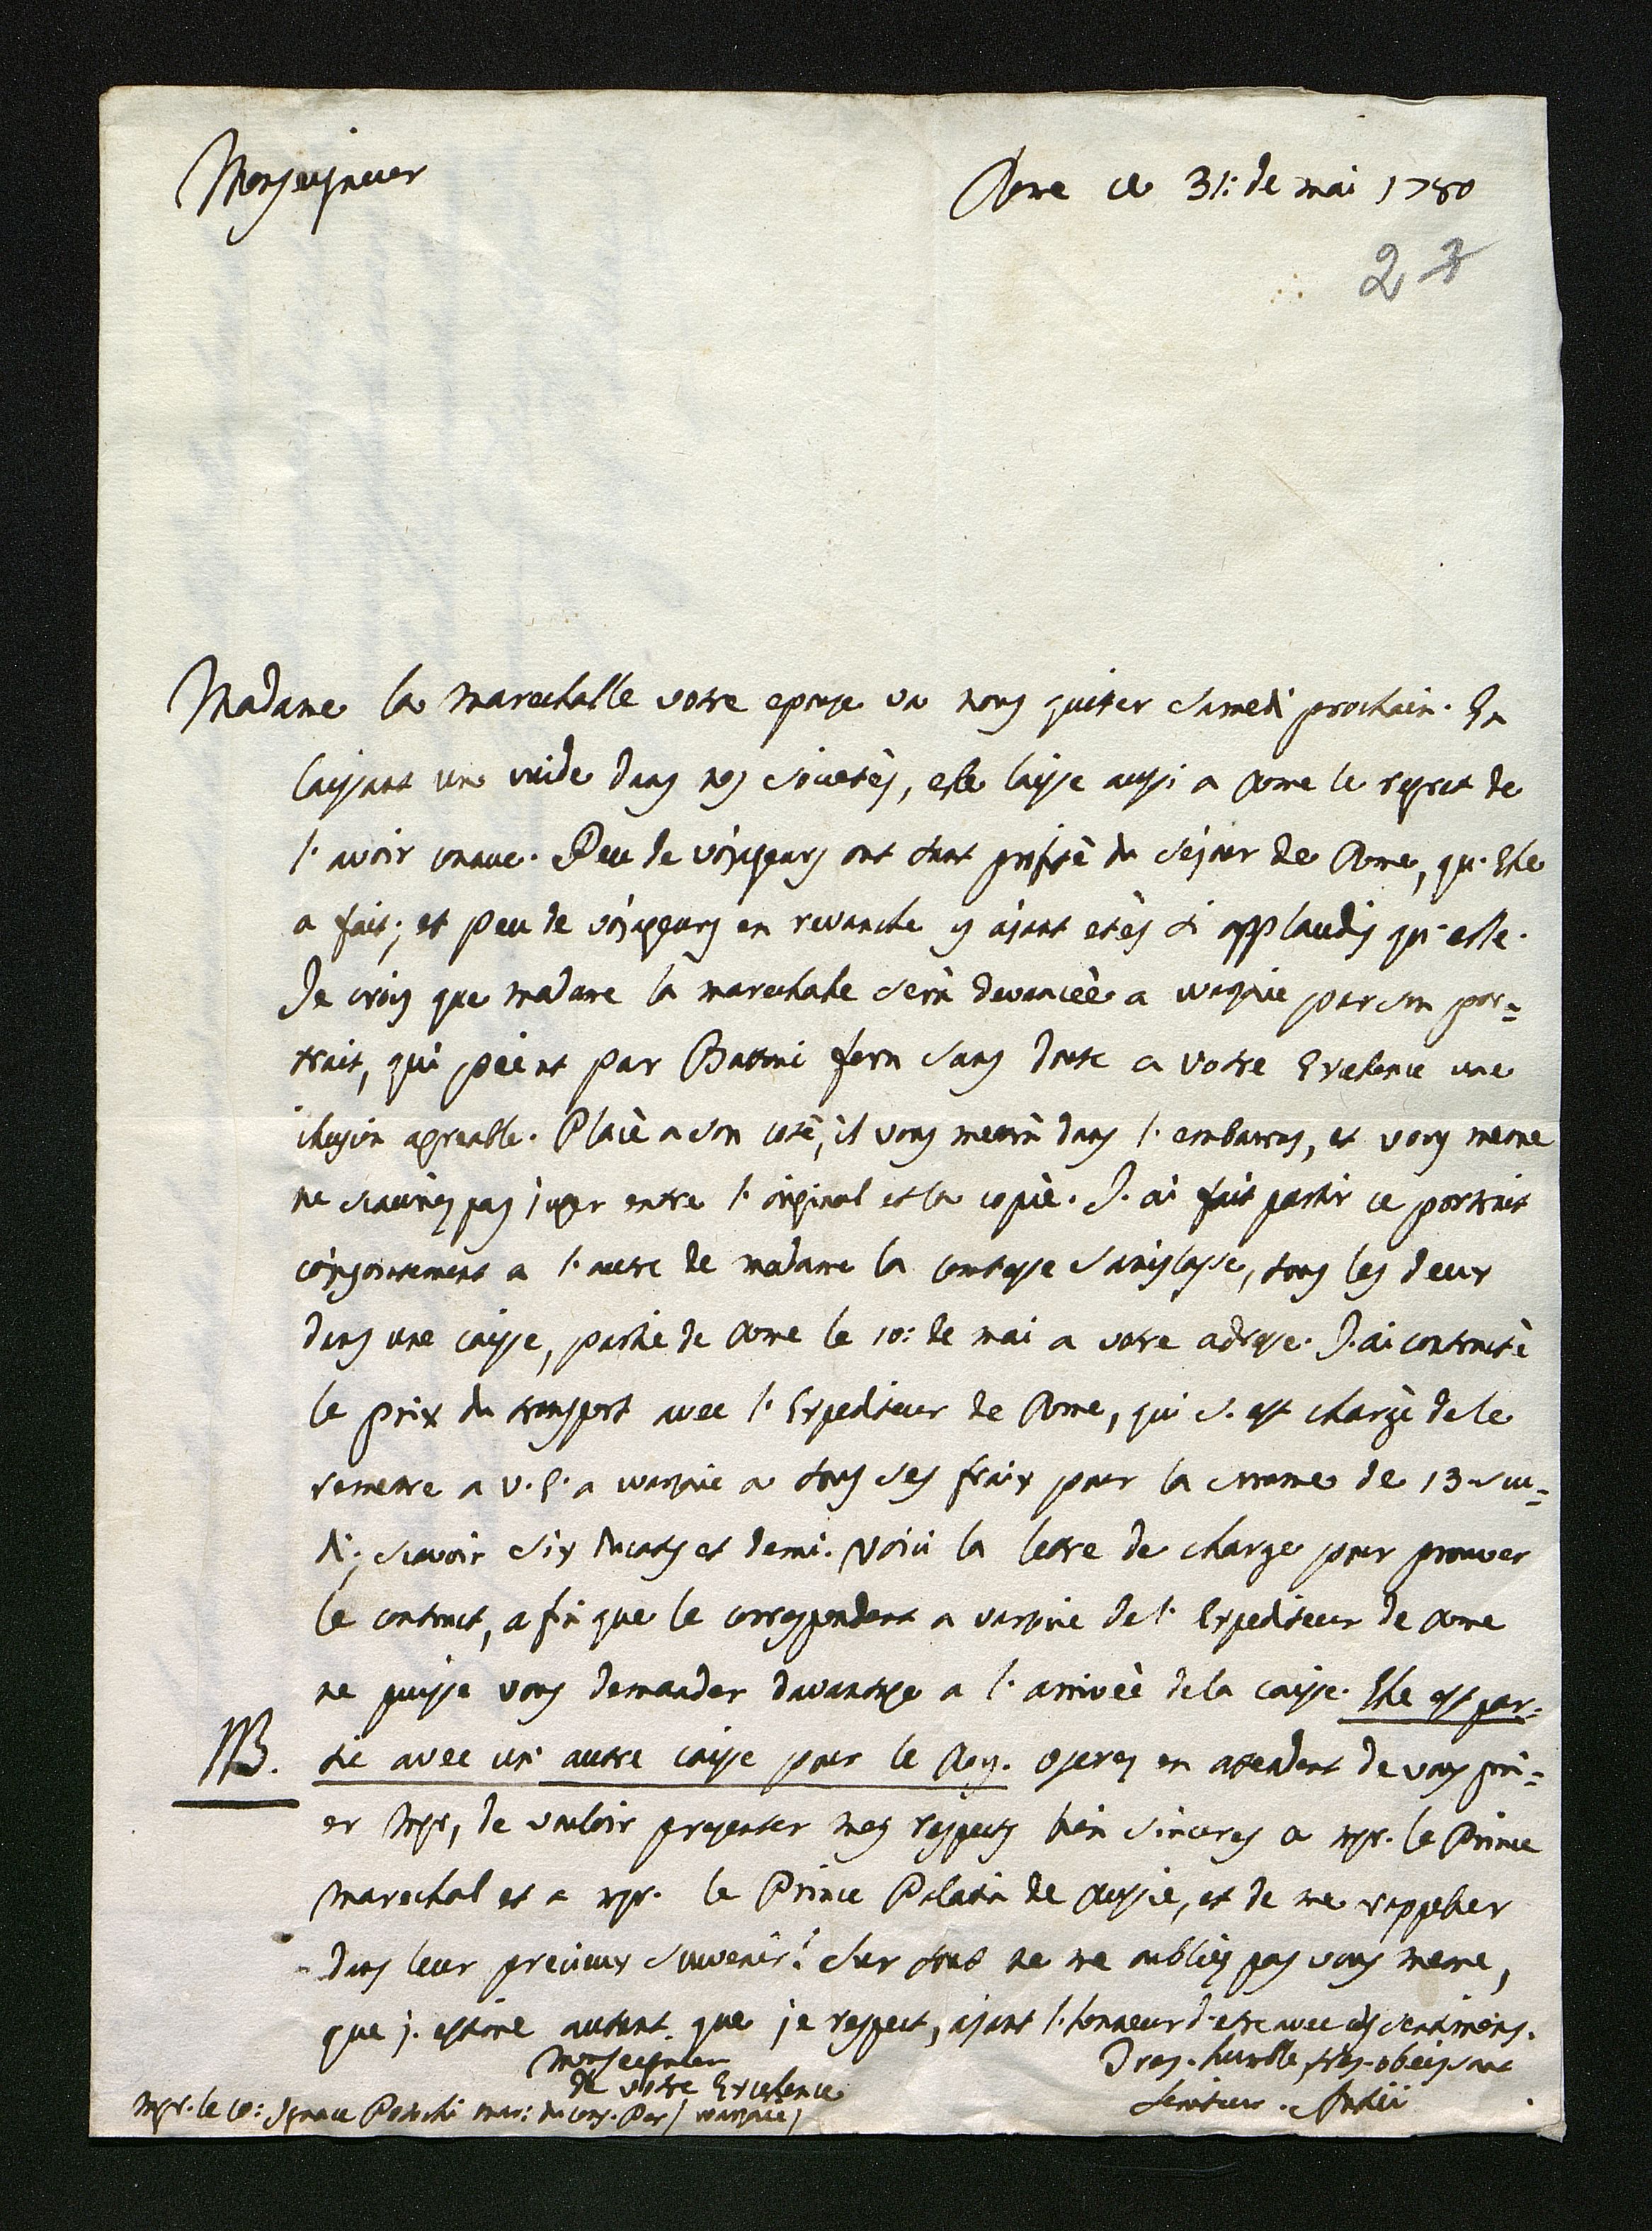 Monseigneur
Rome ce 31: de mai 1780
23
Madame la marechalle votre epouse va nous quiter samedi prochain. En
laissant une vuide dans nos societès, elle laisse aussi a Rome le regret de
l'avoir conue. Peu de voyageurs ont tant profitè du séjour de Rome, qu'Elle
a fait; et peu de voyageurs en revanche y ajant etès si applaudis qu'elle.
Je crois que madame la marechale serà devancèè a warsovie par son por=
trait, qui peint par Battoni fera sans doute a votre Excelence une
illusion agreable. Placè a son cotè, il vous mettrà dans l'embarras, et vous meme
ne scauriez pas juger entre l'original et la copie. J'ai fait partir ce portrait
conjointement a l'autre de madame la comtesse Stanislasse, tous les deux
dans une caisse, partie de Rome le 10: de mai a votre adresse. J'ai contractè
le prix du transport avec l'Expediteur de Rome, qui s'est chargè de le
remettre a V. E. a warsovie a tous ses fraix pour la somme de 13 scu=
di; scavoir six ducats et demi. Voici la lettre de charge pour prouver
le contract, a fin que le correspondent a varsovie de l'Expediteur de Rome
ne puisse vous demander davantage a l'arrivèè de la caisse. Elle est par=
NB. tie avec un autre caisse pour le Roy. Oserez en attendant de vous pri=
er Mgr, de vouloir presenter mes respects bien sinceres a mgr. le Prince
marechal et a mgr. le Prince Palatin de Russie, et de me rappeller
dans leur precieux souvenir! Sur tout ne me oubliez pas vous meme,
que j'estime autant que je respect, ajant l'honneur d'etre avec ces sentimens.
Monseigneur
de votre Excelence
Tres-humble, tres-obeissant
Serviteur. Antici
Mgr. le Co: Ignace Potocki mar: du cons. Per / warsovie /